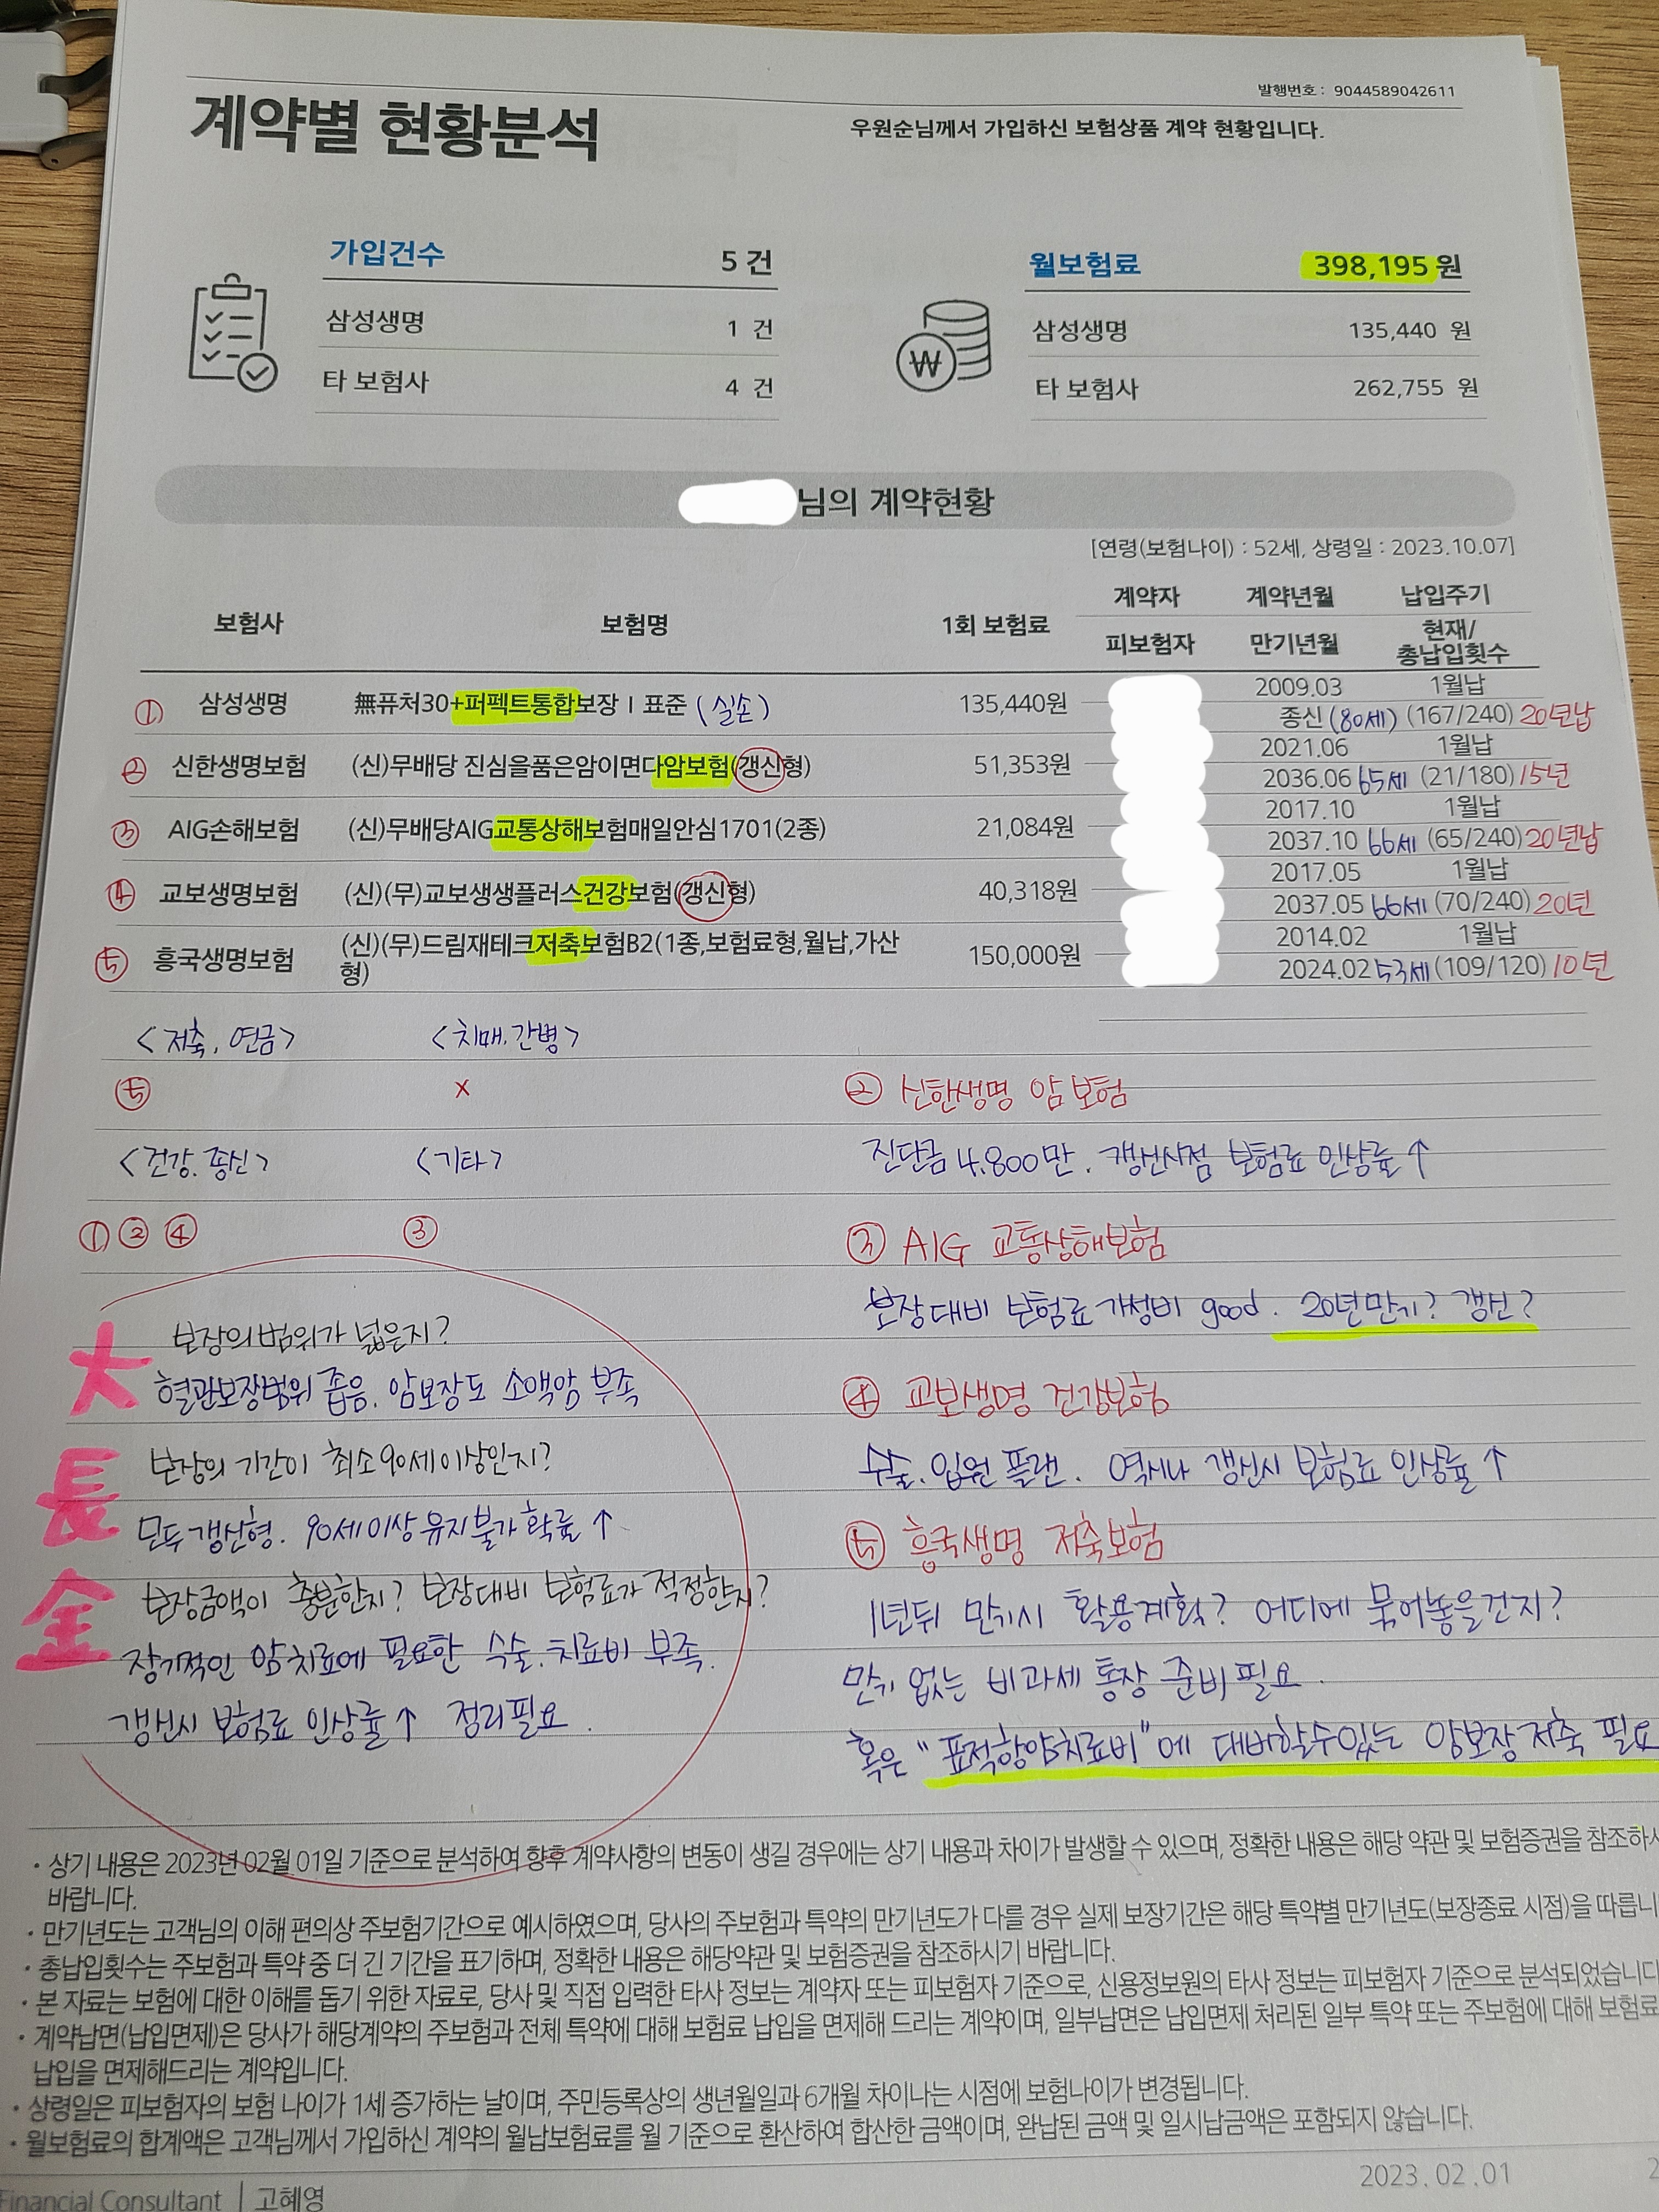 발행번호 : 9044589042611
계약별 현황분석
우원순님께서 가입하신 보험상품 계약 현황입니다.
가입건수 5 건
삼성생명 1 건
타 보험사 4 건
월보험료 398,195 원
삼성생명 135,440 원
타 보험사 262,755 원
님의 계약현황
[연령(보험나이) : 52세, 상령일 : 2023.10.07]
보험사 보험명 1회 보험료 계약자 피보험자 계약년월 만기년월 납입주기 현재/총납입횟수
① 삼성생명 無퓨처30+퍼펙트통합보장 I 표준 (실손) 135,440원 2009.03 1월납
종신 (80세) (167/240) 20년납
② 신한생명보험 (신)무배당 진심을품은암이면다암보험(갱신형) 51,353원 2021.06 1월납
2036.06 65세 (21/180) 15년
③ AIG손해보험 (신)무배당AIG교통상해보험매일안심1701(2종) 21,084원 2017.10 1월납
2037.10 66세 (65/240) 20년납
④ 교보생명보험 (신)(무)교보생생플러스건강보험(갱신형) 40,318원 2017.05 1월납
2037.05 66세 (70/240) 20년
⑤ 흥국생명보험 (신)(무)드림재테크저축보험B2(1종,보험료형,월납,가산형) 150,000원 2014.02 1월납
2024.02 53세 (109/120) 10년
<저축, 연금> <치매.간병>
⑤ x
<건강.종신> <기타>
① ② ④ ③
大 보장의 범위가 넓은지?
혈관보장범위 좁음. 암보장도 소액암 부족
長 보장의 기간이 최소 90세 이상인지?
모두 갱신형. 90세 이상 유지불가 확률 ↑
金 보장금액이 충분한지? 보장대비 보험료가 적정한지?
장기적인 암치료에 필요한 수술.치료비 부족.
갱신시 보험료 인상률 ↑ 정리필요.
② 신한생명 암보험
진단금 4,800만. 갱신시점 보험료 인상률 ↑
③ AIG 교통상해보험
보장대비 보험료 가성비 good. 20년만기? 갱신?
④ 교보생명 건강보험
수술.입원 플랜. 역시나 갱신시 보험료 인상률 ↑
⑤ 흥국생명 저축보험
1년뒤 만기시 활용계획? 어디에 묶어놓을건지?
만기 없는 비과세 통장 준비필요.
혹은 "표적항암치료비"에 대비할수있는 암보장저축 필요
· 상기 내용은 2023년 02월 01일 기준으로 분석하여 향후 계약사항의 변동이 생길 경우에는 상기 내용과 차이가 발생할 수 있으며, 정확한 내용은 해당 약관 및 보험증권을 참조하시
바랍니다.
· 만기년도는 고객님의 이해 편의상 주보험기간으로 예시하였으며, 당사의 주보험과 특약의 만기년도가 다를 경우 실제 보장기간은 해당 특약별 만기년도(보장종료 시점)을 따릅니
· 총납입횟수는 주보험과 특약 중 더 긴 기간을 표기하며, 정확한 내용은 해당약관 및 보험증권을 참조하시기 바랍니다.
· 본 자료는 보험에 대한 이해를 돕기 위한 자료로, 당사 및 직접 입력한 타사 정보는 계약자 또는 피보험자 기준으로, 신용정보원의 타사 정보는 피보험자 기준으로 분석되었습니다
· 계약납면(납입면제)은 당사가 해당계약의 주보험과 전체 특약에 대해 보험료 납입을 면제해 드리는 계약이며, 일부납면은 납입면제 처리된 일부 특약 또는 주보험에 대해 보험료
납입을 면제해드리는 계약입니다.
· 상령일은 피보험자의 보험 나이가 1세 증가하는 날이며, 주민등록상의 생년월일과 6개월 차이나는 시점에 보험나이가 변경됩니다.
· 월보험료의 합계액은 고객님께서 가입하신 계약의 월납보험료를 월 기준으로 환산하여 합산한 금액이며, 완납된 금액 및 일시납금액은 포함되지 않습니다.
2023.02.01
Financial Consultant | 고혜영